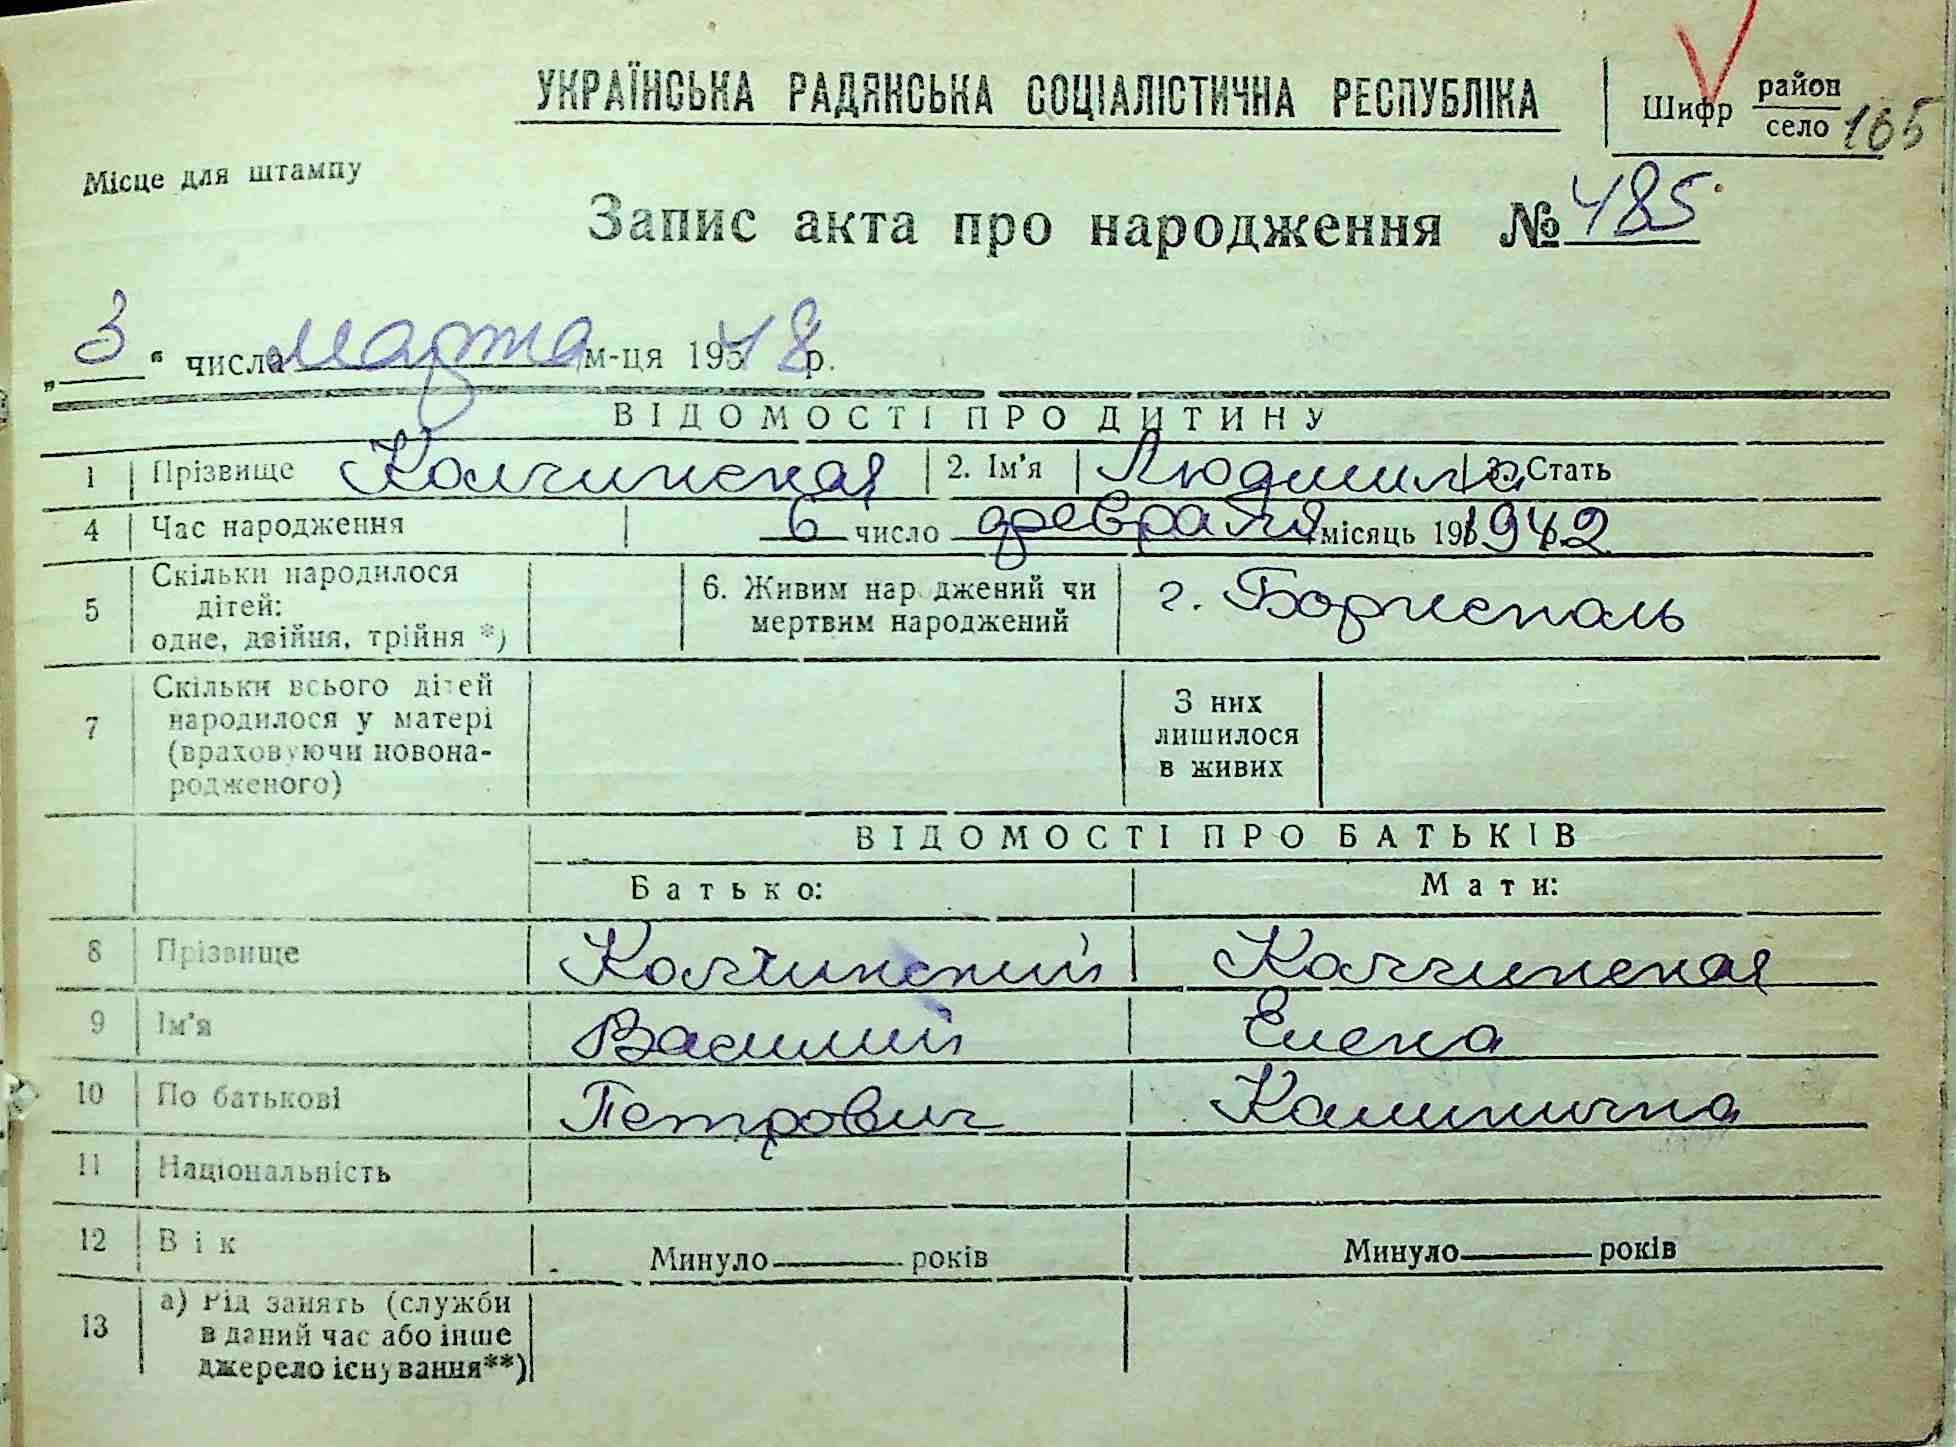 УКРАЇНСЬКА РАДЯНСЬКА СОЦІАЛІСТИЧНА РЕСПУБЛІКА
Шифр район село 165
Місце для штампу
Запис акта про народження № 485
„3“ числа марта м-ця 195 48 р.
ВІДОМОСТІ ПРО ДИТИНУ
1 Прізвище Колчинская 2. Ім'я Людмила 3. Стать
4 Час народження 6 число февраля місяць 19 1942
5 Скільки народилося дітей: одне, двійня, трійня *) 6. Живим народжений чи мертвим народжений г. Борисполь
7 Скільки всього дітей народилося у матері (враховуючи новонародженого) З них лишилося в живих
ВІДОМОСТІ ПРО БАТЬКІВ
Батько: Мати:
8 Прізвище Колчинский Колчинская
9 Ім'я Василий Елена
10 По батькові Петрович Калинична
11 Національність
12 Вік Минуло років Минуло років
13 а) Рід занять (служби в даний час або інше джерело існування**)